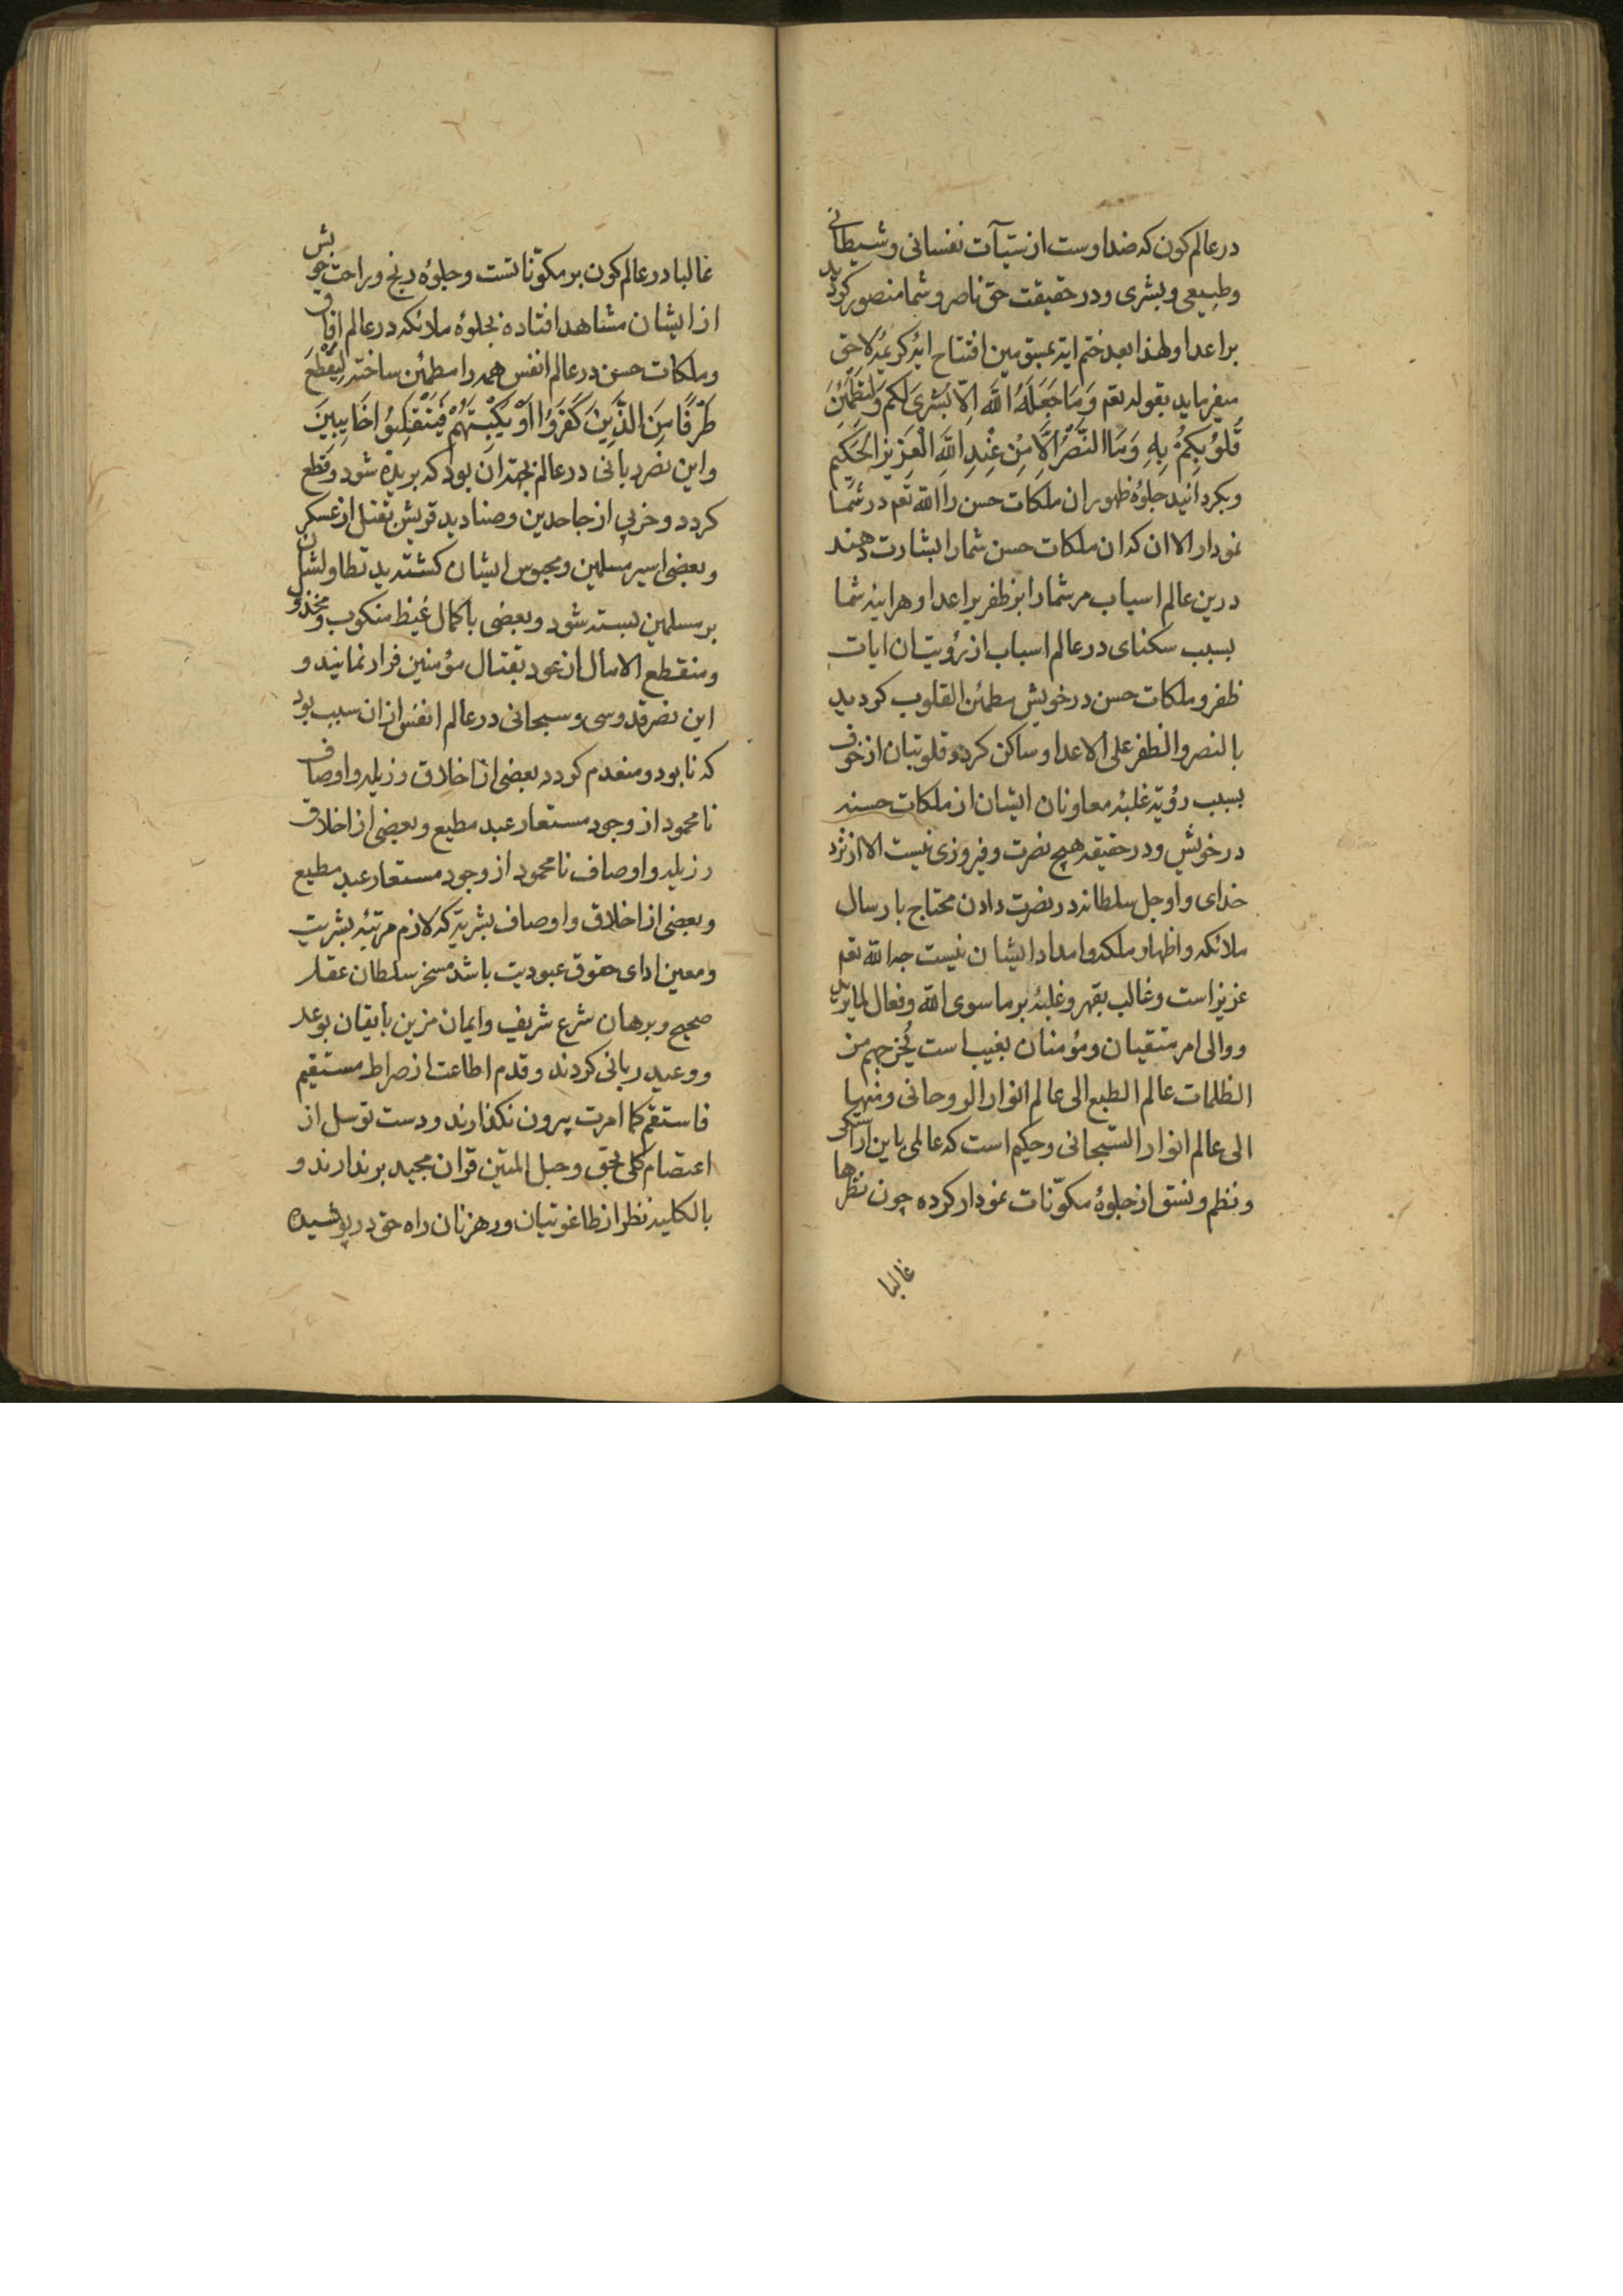 در عالم کون که ضد اوست از سیّآت نفسانی و شیطانی
و طبیعی و بشری و در حقیقت حق ناصر و شما منصور کردید
بر اعدا و لهذا بعد ختم ایة بمبین افتتاح ایهٔ کریمهٔ لاحق
میفرماید بقوله تعم وَمَا جَعَلَهُ اللَّهُ اِلَّا بُشْرَی لَکُم وَلِتَطْمَئِنَّ
قُلُوبُکُمْ بِهِ وَمَا النَّصْرُ اِلَّا مِنْ عِنْدِ اللَّهِ الْعَزِیزِ الْحَکِیمِ
و نکردانید جلوهٔ ظهور ان ملکات حسن را الله تعم در شما
نمودار الا ان که ان ملکات حسن شما را بشارت دهند
درین عالم اسباب مر شما را بر ظفر بر اعدا و هراینه شما
بسبب سکنای در عالم اسباب از رؤیت ان ایات
ظفر و ملکات حسن در خویش مطمئن القلوب کردید
بالنصر و الظفر علی الاعدا و ساکن کردد قلوبتان از خوف
بسبب رؤیة غلبهٔ معاونان ایشان از ملکات حسنه
در خویش و در حقیقه هیچ نصرت و فیروزی نیست الا از نزد
خدای و او جل سلطانه در نصرت دادن محتاج بارسال
ملائکه و اظهار ملکه و امداد ایشان نیست چه الله تعم
عزیز است و غالب بقهر و غلبهٔ بر ما سوی الله و فعال لما یرید
و والی امر متقیان و مؤمنان بغیب است یُخرجهم من
الظلمات عالم الطبع الی عالم انوار الروحانی و منها
الی عالم انوار السّبحانی و حکیم است که عالمی باین اراستکی
و نظم و نسق از جلوهٔ مکوّنات نمودار کرده چون نظرها
غالبا
غالبا در عالم کون بر مکوّناتست و جلوهٔ رنج و راحت خویش
از ایشان مشاهد افتاده بجلوهٔ ملائکه در عالم افاق
و ملکات حسن در عالم انفس همه را مطمئن ساخته لِیَقْطَعَ
طَرَفًا مِنَ الَّذِینَ کَفَرُوا اَوْ یَکْبِتَهُمْ فَیَنْقَلِبُوا خَایِبِینَ
و این نصر ربانی در عالم بجهة ان بود که بریده شود و قطع
کردد و حزبی از جاحدین و صنادید قریش بقتل از عسکر
و بعضی اسیر مسلمین و محبوس ایشان کشته ید تطاولشان
بر مسلمین بسته شود و بعضی با کمال غیظ منکوب و مخذول
و منقطع الامال از عود بقتال مؤمنین فرار نمایند و
این نصر قدوسی و سبحانی در عالم انفس از ان سبب بود
که نابود و منعدم کردد بعضی از اخلاق رزیله و اوصاف
نامحمود از وجود مستعار عبد مطیع و بعضی از اخلاق
رزیله و اوصاف نامحمود از وجود مستعار عبد مطیع
و بعضی از اخلاق و اوصاف بشریة که لازم مرتبهٔ بشریت
و معین ادای حقوق عبودیت باشد مسخر سلطان عقل
صحیح و برهان شرع شریف و ایمان مزین بایقان بوعد
و وعید ربانی کردند و قدم اطاعت از صراط مستقیم
فاستقم کما امرت بیرون نکذارند و دست توسل از
اعتصام کلی بحق و حبل المتین قران مجید برندارند و
بالکلیه نظر از طاغوتیان و رهزنان راه حق در پوشیده